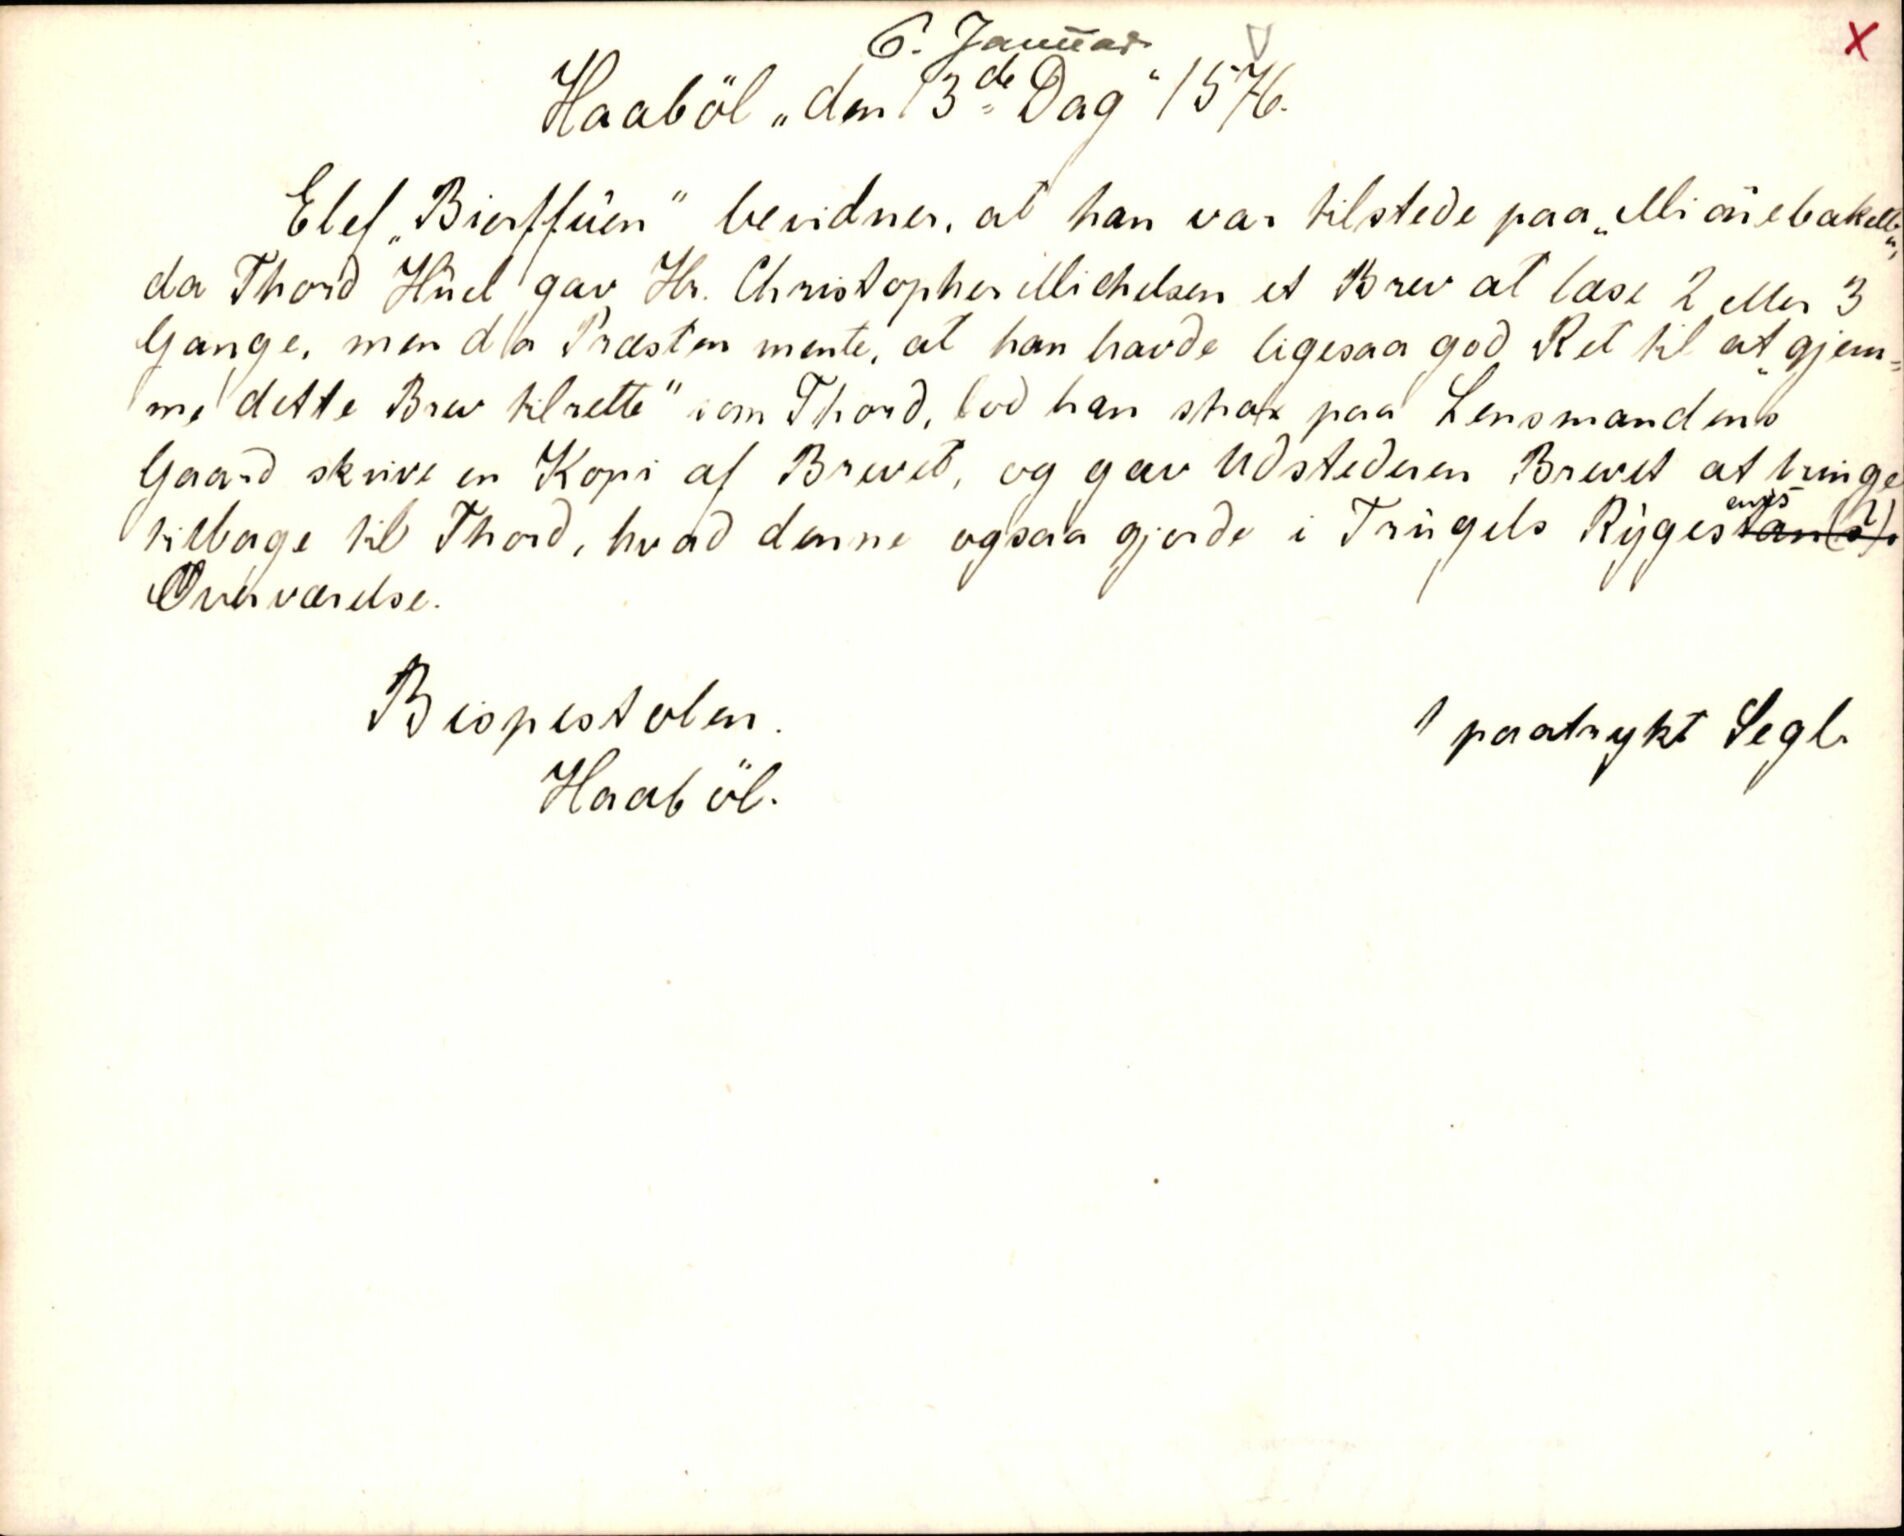 6. Januar
Haaböl „den 13de Dag" 1576.
X
Elef „Bierffuen" bevidner, at han var tilstede paa „Miönebakelb",
da Thord Huel gav Hr. Christopher Michelsen et Brev at læse 2 eller 3
Gange, men da Præsten mente, at han havde ligesaa god Ret til at „gjem=
me dette Brev tilrette" som Thord, lod han strax paa Lensmandens
Gaard skrive en Kopi af Brevet, og gav Udstederen Brevet at bringe
tilbage til Thord, hvad denne ogsaa gjorde i Trügels Rÿges
Overværelse.
Bispestolen.
1 paatrykt Segl.
Haaböl.